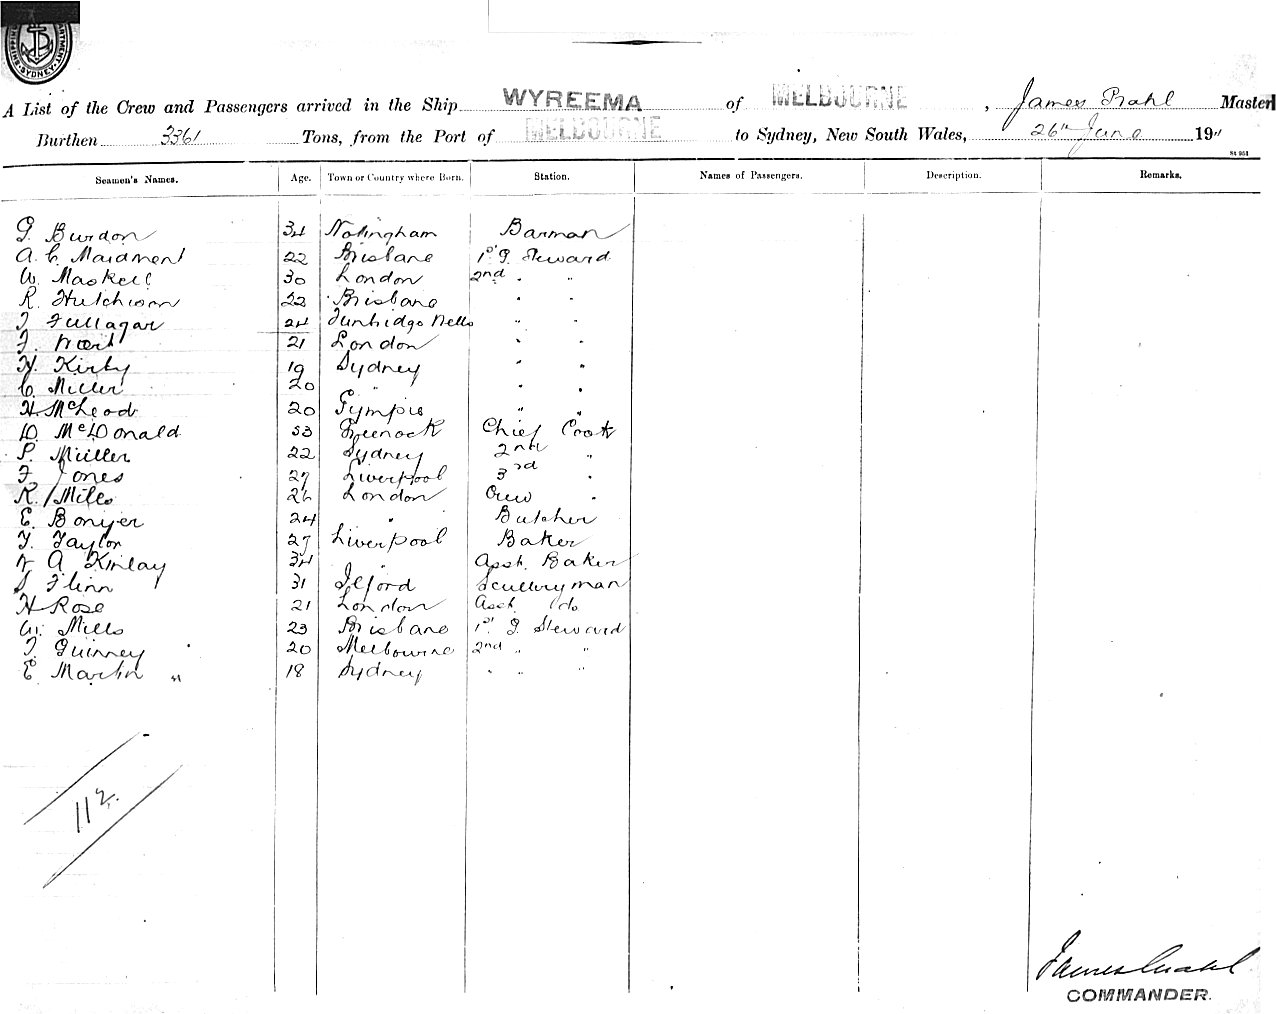 DEPARTMENT
SYDNEY
A List of the Crew and Passengers arrived in the Ship WYREEMA of MELBOURNE, James Prahl Master
Burthen 3361 Tons, from the Port of MELBOURNE to Sydney, New South Wales, 26th June 1911
St 951
Seamen's Names. Age. Town or Country where Born. Station. Names of Passengers. Description. Remarks.
G. Burdon 34 Nottingham Barman
A. C. Maidment 22 Brisbane 1st G. Steward
W. Maskell 30 London 2nd " "
R. Hutchison 22 Brisbane " "
T Fullagar 24 Tunbridge Wells " "
F. 21 London " "
H. Kirby 19 Sydney " "
C. Miller 20 " " "
H. McLeod 20 Gympie " "
D. McDonald 53 Greenock Chief Cook
P. Müller 22 Sydney 2nd "
F. Jones 27 Liverpool 3rd "
R. Mills 26 London Crew "
E. Bonyer 24 " Butcher
F. Taylor 27 Liverpool Baker
A Kinlay 34 " Asst. Baker
S Flinn 31 Ilford Sculleryman
H Rose 21 London Asst. do
W. Mills 23 Brisbane 1st G Steward
T. Guinney 20 Melbourne 2nd " "
E Martin " 18 Sydney " " "
112.
James Prahl
COMMANDER.